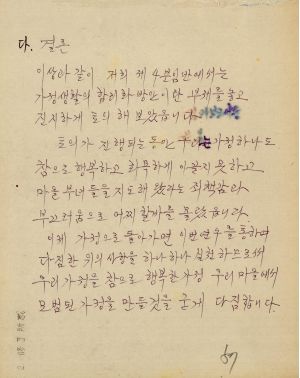 다. 결론
이상과 같이 저희 제 4분임반에서는
가정생활의 합리화 방안이란 부제를 놓고
진지하게 토의 해 보았읍니다.
토의가 진행되는 동안 우리는 가정하나도
참으로 행복하고 화목하게 이끌지 못하고
마을 부녀들을 지도해 왔다는 죄책감과
부끄러움으로 어찌 할바를 몰랐읍니다.
이제 가정으로 돌아가면 이번 연수를 통하여
다짐한 위의 사항을 하나 하나 실천 하므로써
우리 가정을 참으로 행복한 가정 우리 마을에서
모범된 가정을 만들것을 굳게 다짐합니다.